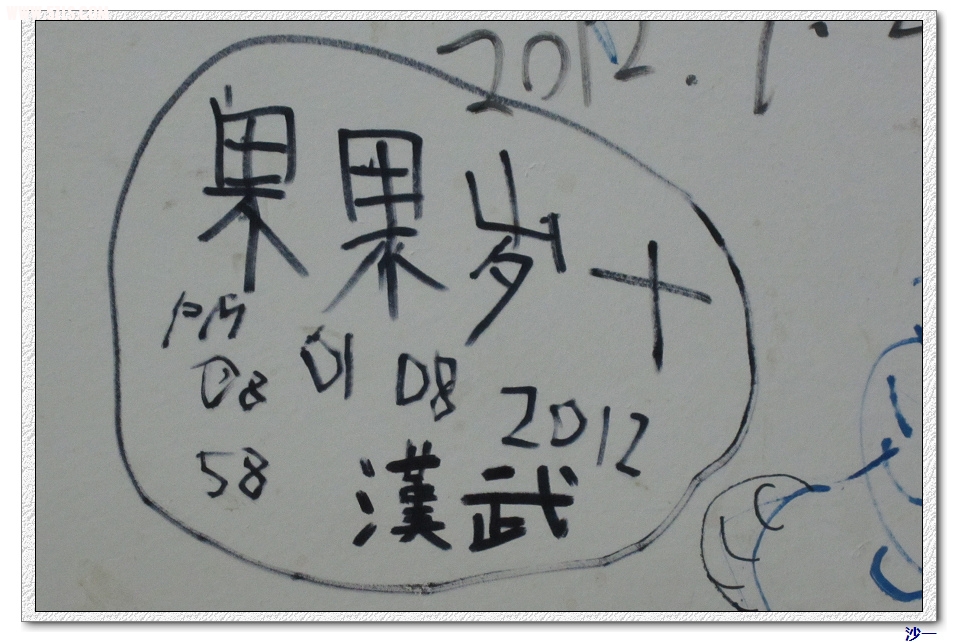 2012.1.2
果果岁十
PM 01 08 2012
08
58
漢武
沙一